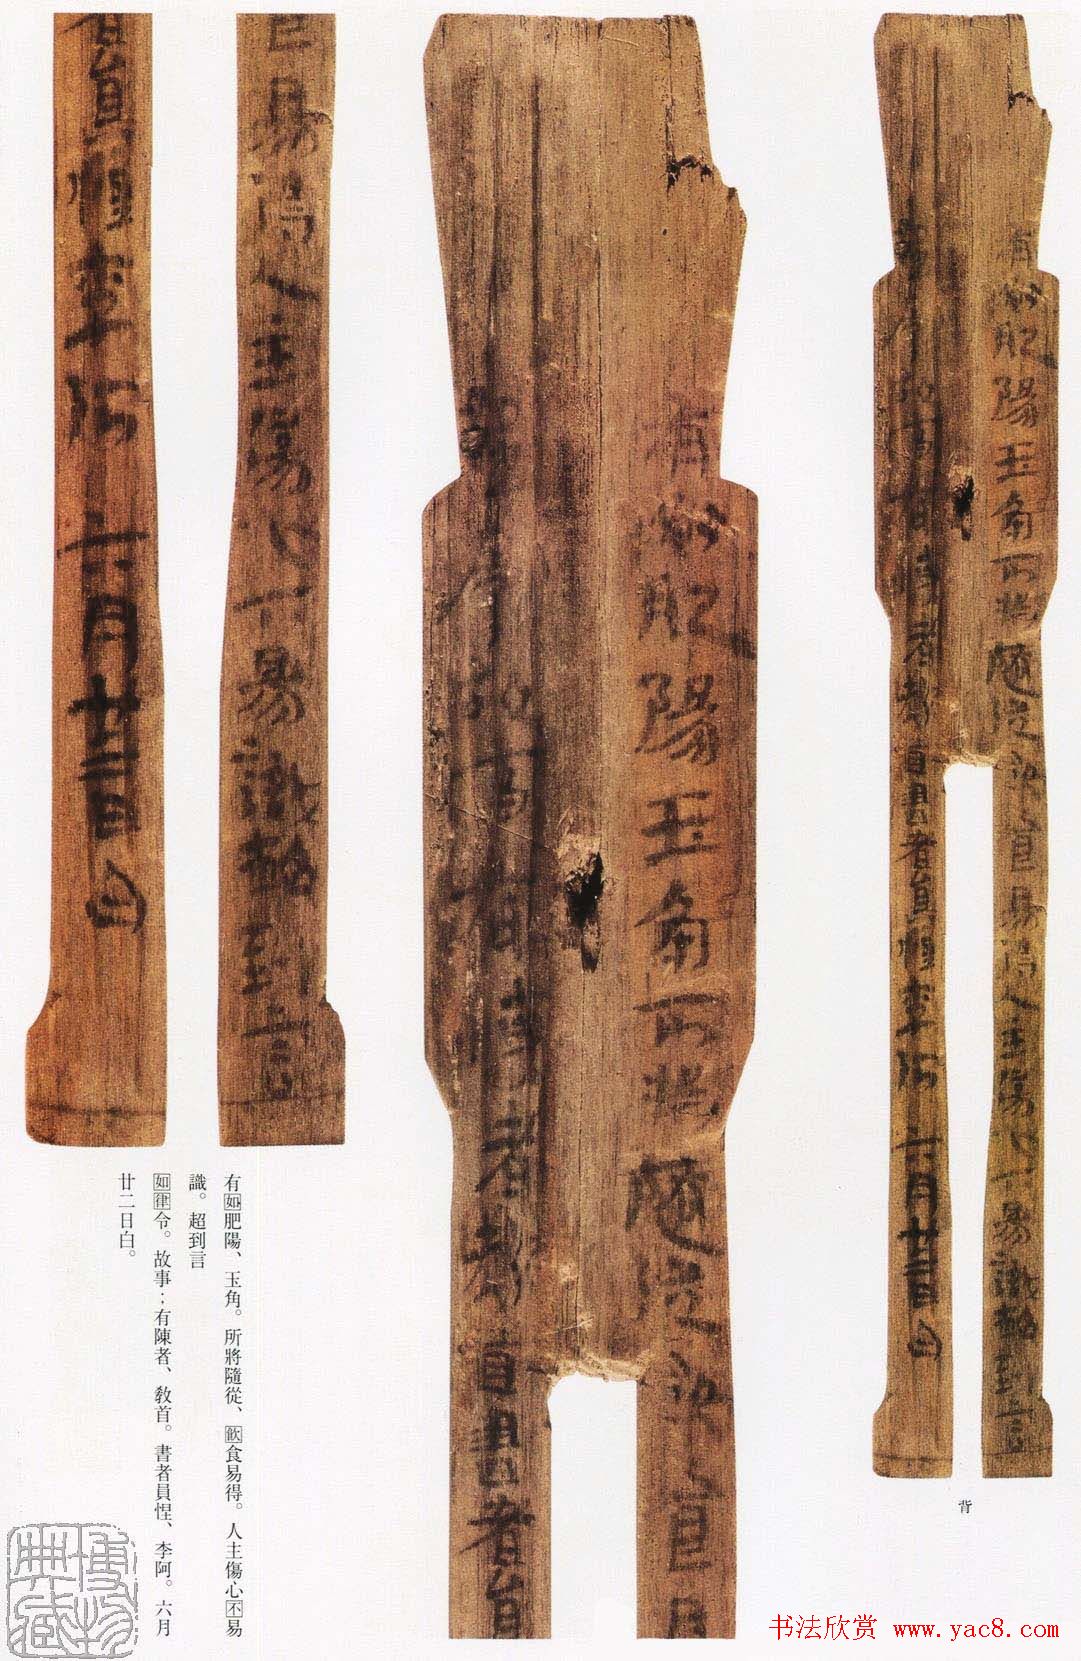 有如肥陽、玉角。所將隨從、飲食易得。人主傷心不易
識。超到言
如律令。故事：有陳者、教首。書者員悝、李阿。六月
廿二日白。
背
书法欣赏 www.yac8.com